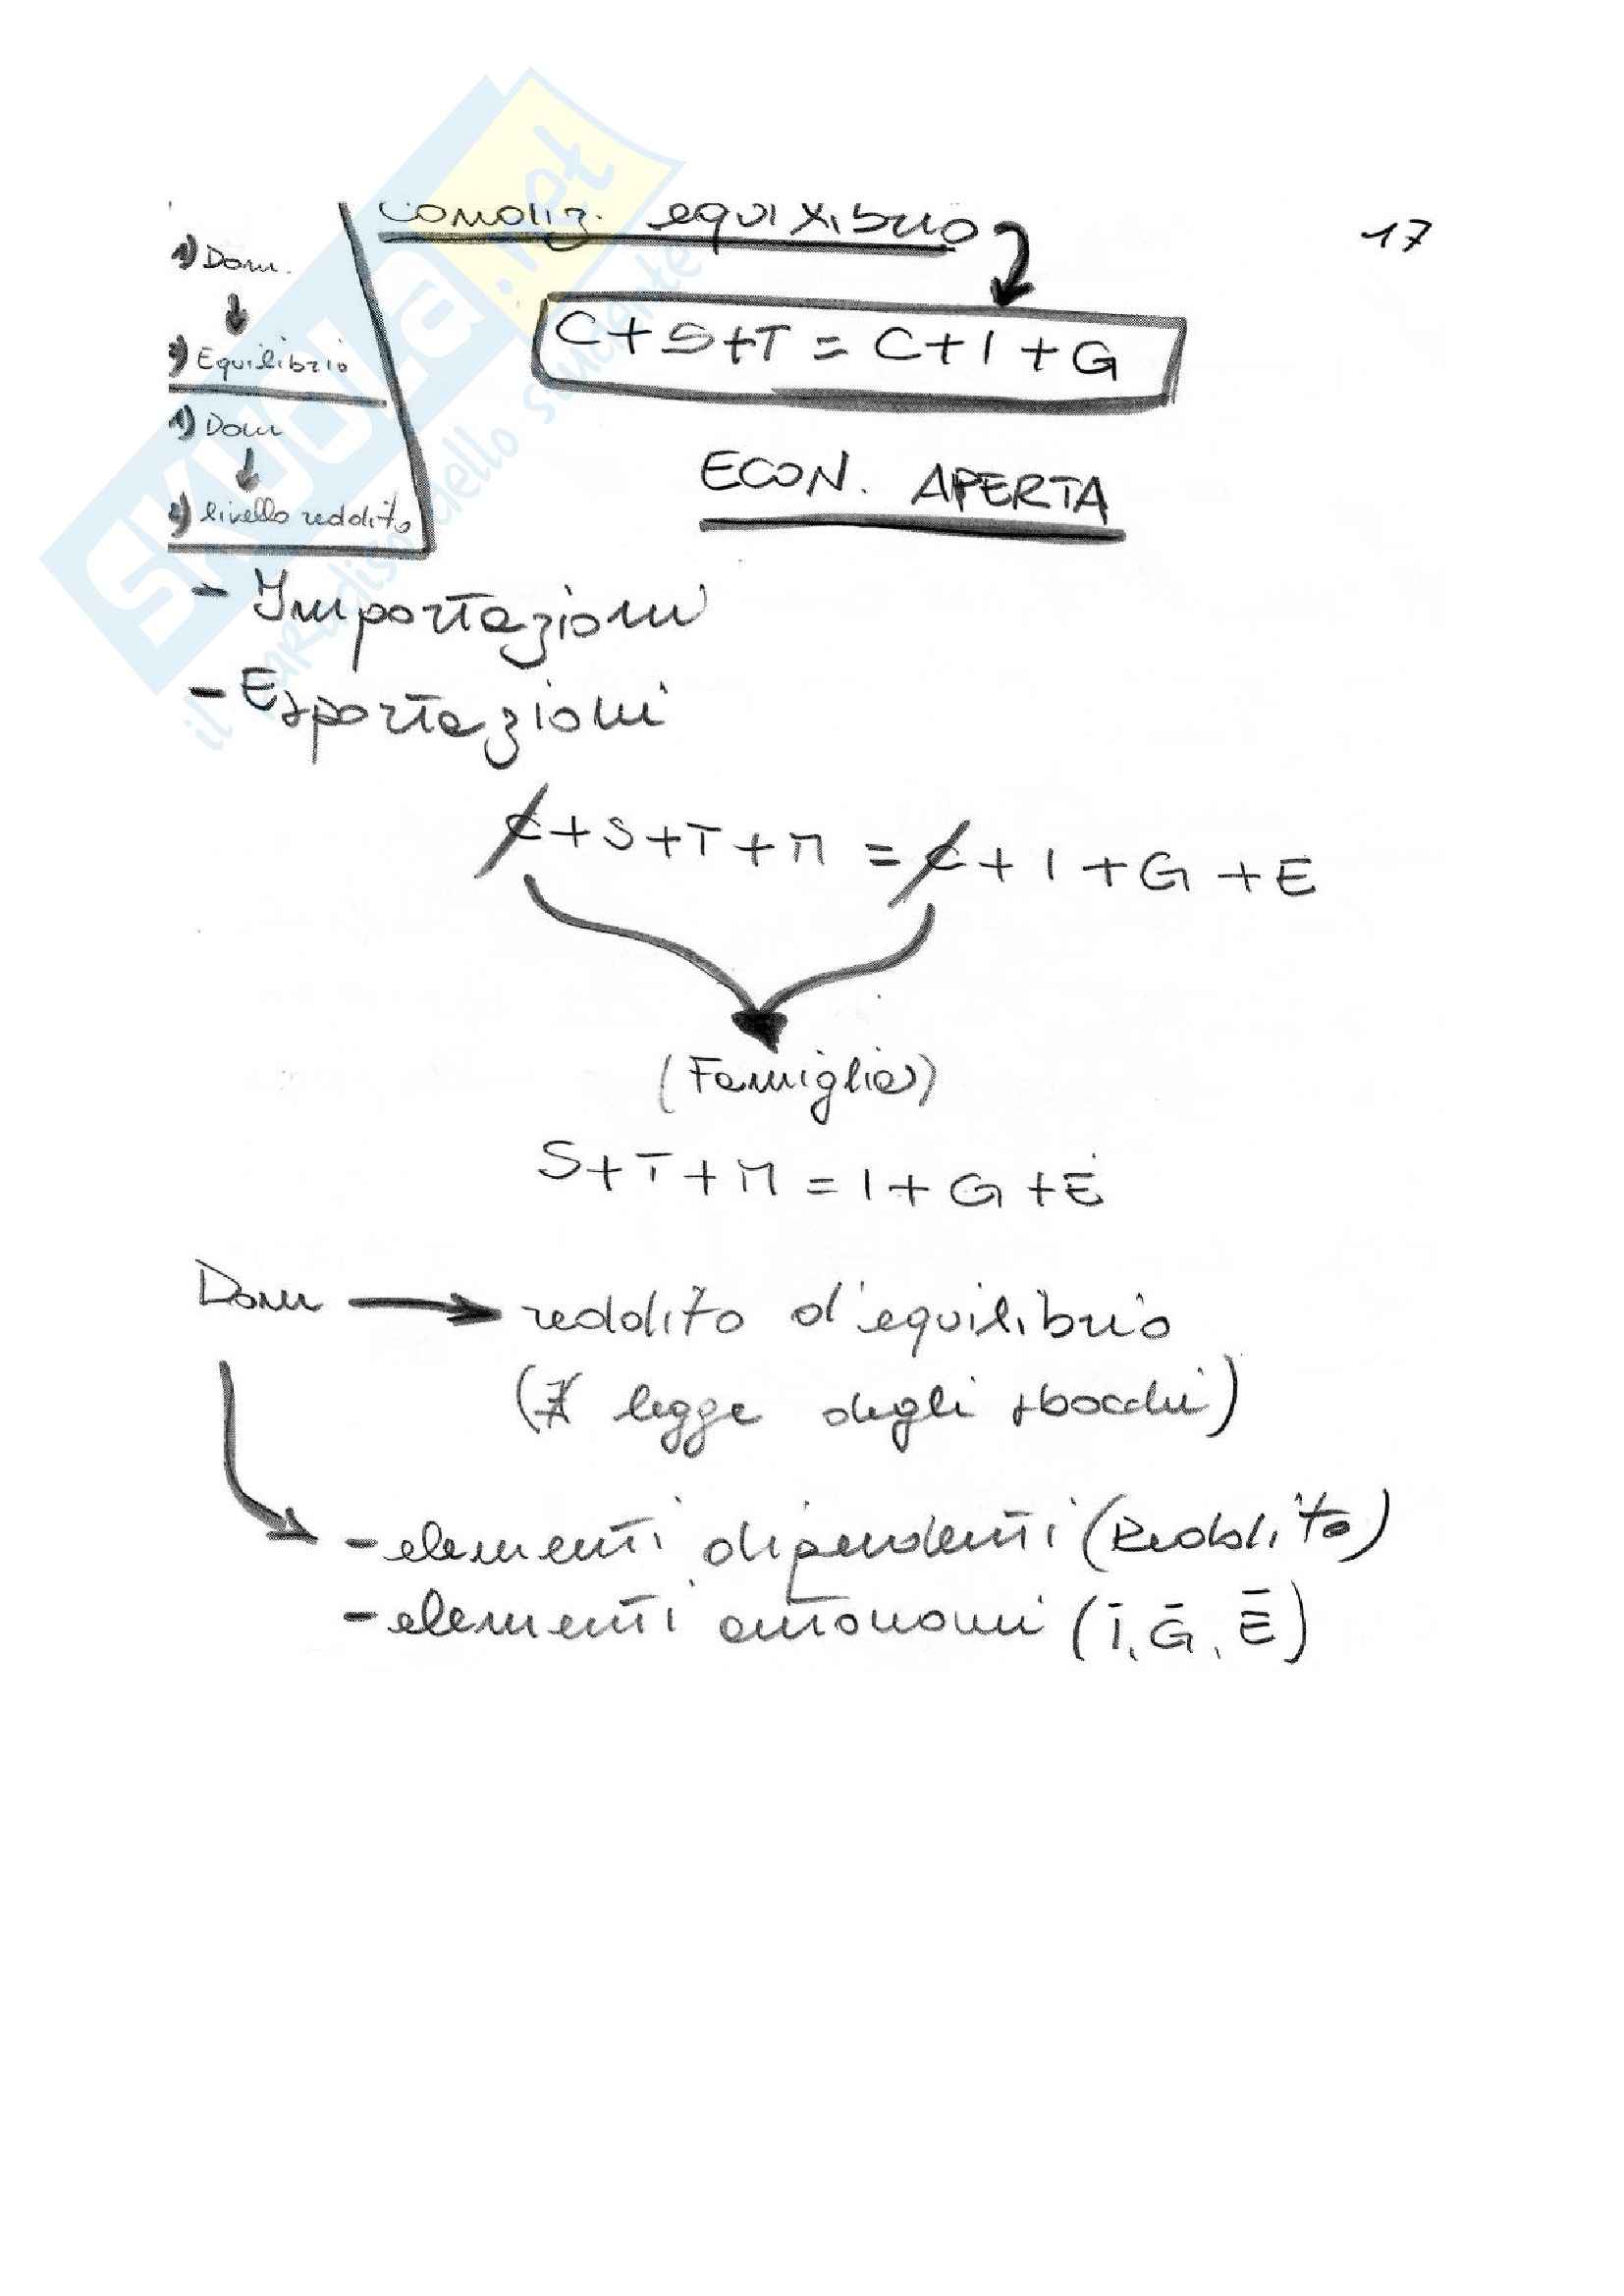 Condiz. equilibrio
17
1) Dom.
↓
2) Equilibrio
1) Dom
↓
2) livello reddito
C+S+T = C+I+G
ECON. APERTA
- Importazioni
- Esportazioni
C+S+T+M = C+I+G+E
(Famiglia)
S+T+M = I+G+E
Dom → reddito d'equilibrio
(∄ legge degli sbocchi)
- elementi dipendenti (Reddito)
- elementi autonomi (Ī, Ḡ, Ē)
SKUOLA.net
il paradiso dello studente